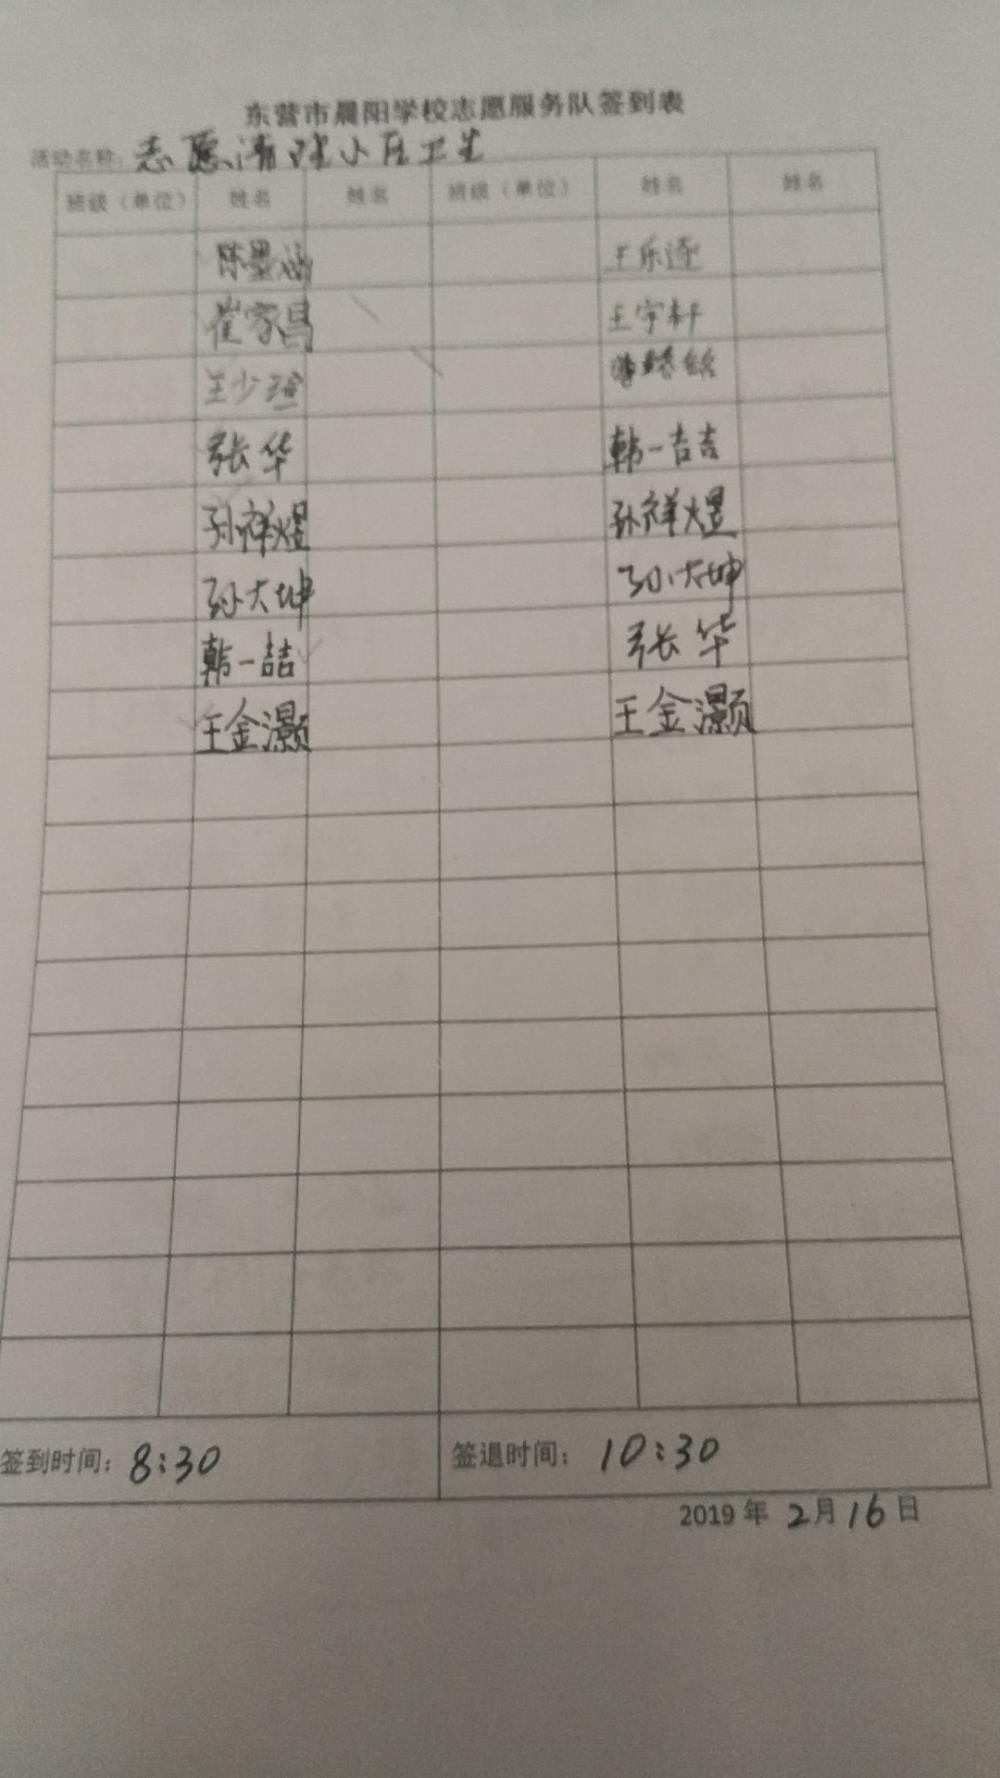 东营市晨阳学校志愿服务队签到表
活动名称：志愿清理小区卫生
班级（单位） 姓名 姓名 班级（单位） 姓名 姓名
陈墨涵 王乐
崔家昌 王宇轩
王少瑄
张华 韩一吉吉
孙祥煜 孙祥煜
孙大坤 孙大坤
韩一喆 张华
王金灏 王金灏
签到时间：8:30 签退时间：10:30
2019年2月16日